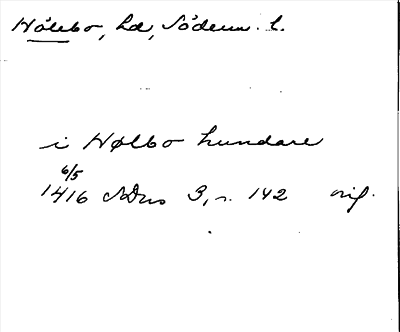 Hölebo, hd, Söderm. l.
i Hølbo hundare
6/5
1416 SDns 3, n. 142 orig.